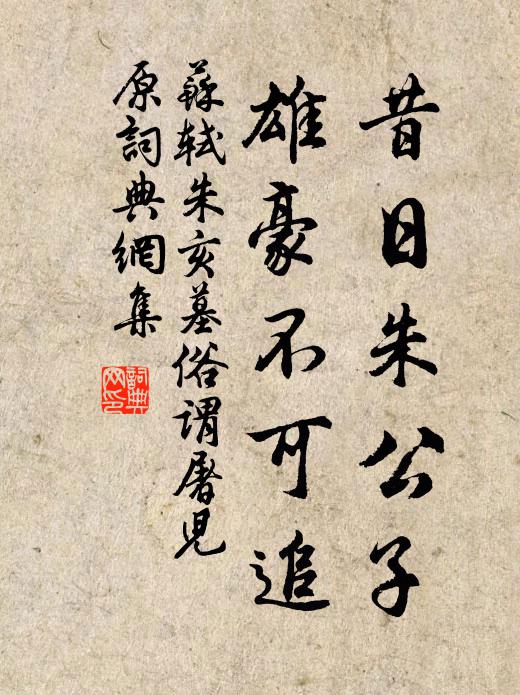 昔日朱公子
雄豪不可追
蘇軾朱亥墓俗謂屠兒
原詞典網集
詞典